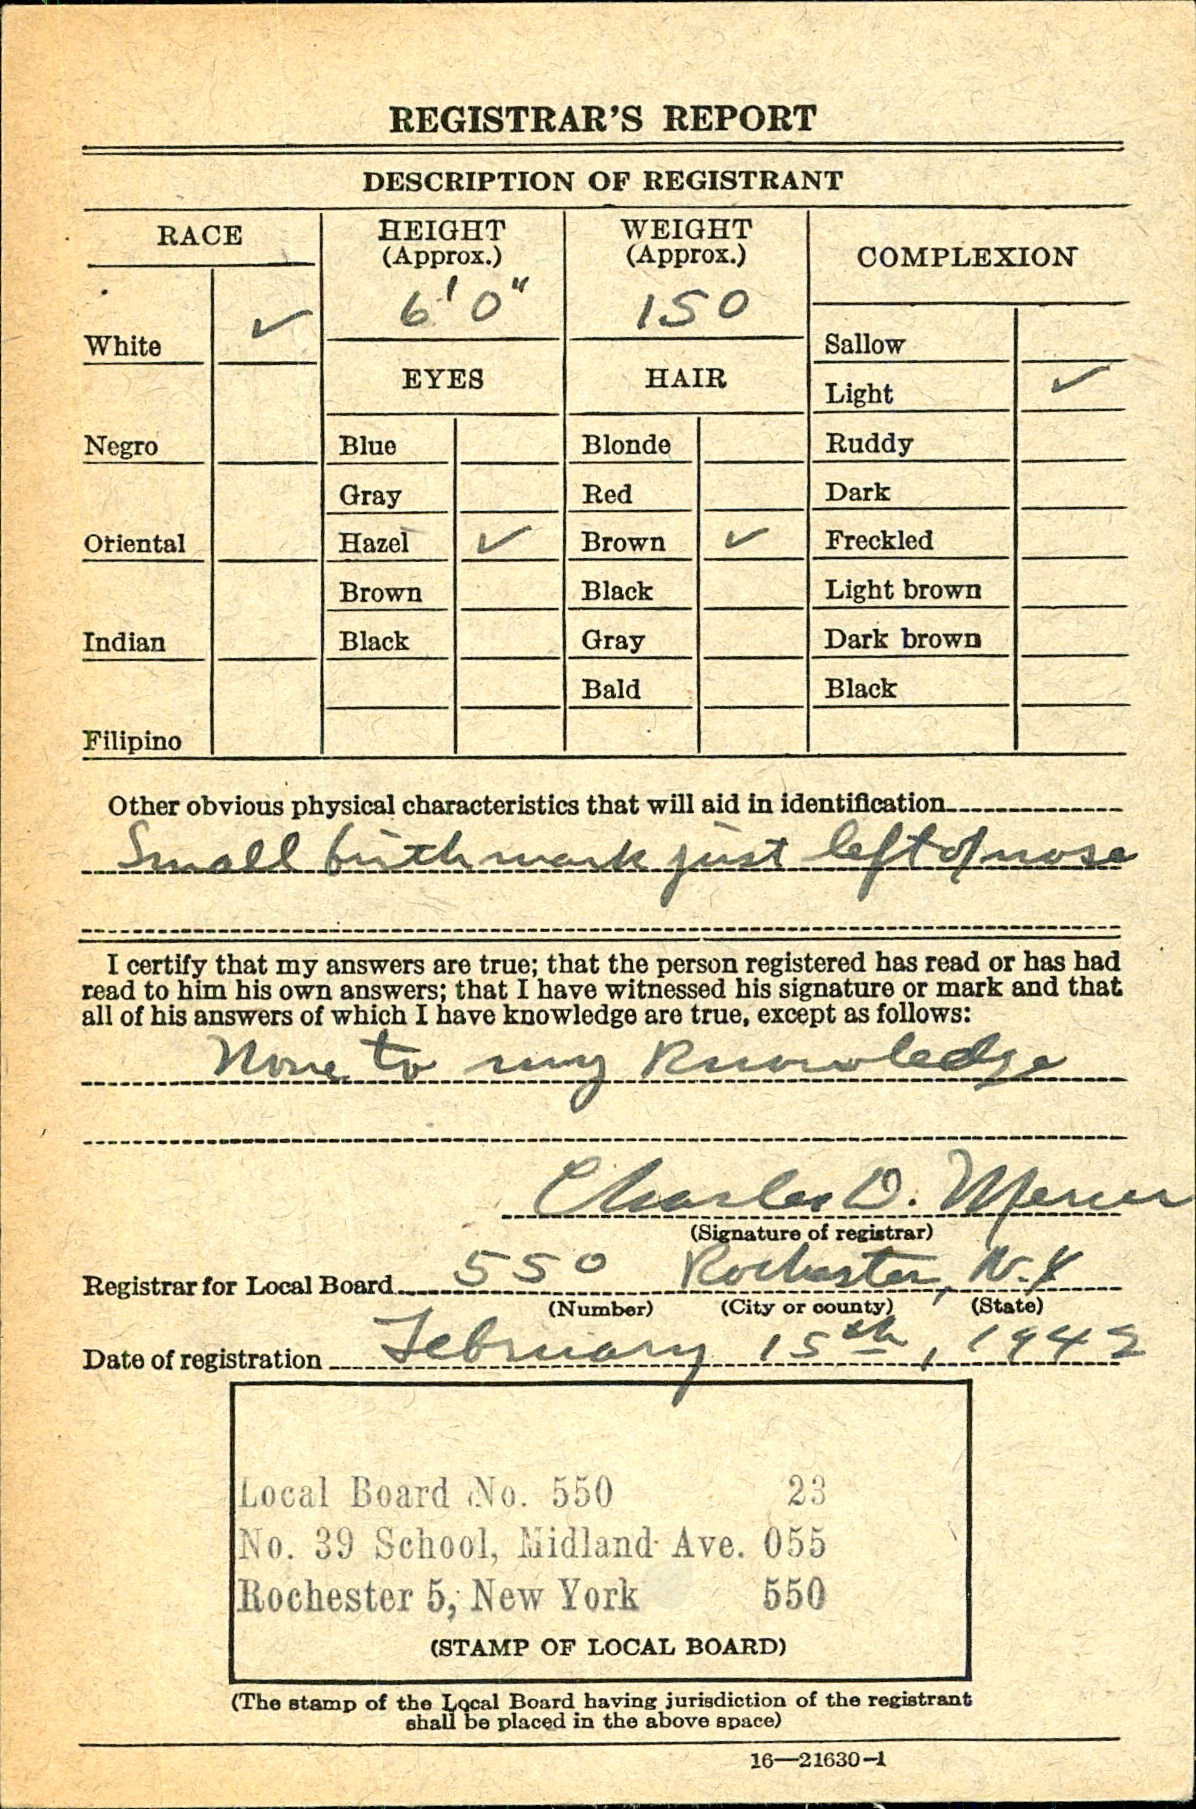 REGISTRAR'S REPORT
DESCRIPTION OF REGISTRANT
RACE
HEIGHT
(Approx.)
WEIGHT
(Approx.)
COMPLEXION
6' 0"
150
White ✓
Sallow
EYES
HAIR
Light ✓
Negro
Blue
Blonde
Ruddy
Gray
Red
Dark
Oriental
Hazel ✓
Brown ✓
Freckled
Brown
Black
Light brown
Indian
Black
Gray
Dark brown
Bald
Black
Filipino
Other obvious physical characteristics that will aid in identification
Small birth mark just left of nose
I certify that my answers are true; that the person registered has read or has had
read to him his own answers; that I have witnessed his signature or mark and that
all of his answers of which I have knowledge are true, except as follows:
None to my Knowledge
Charles D. Mercer
(Signature of registrar)
Registrar for Local Board 550 Rochester, N.Y
(Number) (City or county) (State)
Date of registration February 15th, 1942
Local Board No. 550 23
No. 39 School, Midland Ave. 055
Rochester 5, New York 550
(STAMP OF LOCAL BOARD)
(The stamp of the Local Board having jurisdiction of the registrant
shall be placed in the above space)
16—21630-1